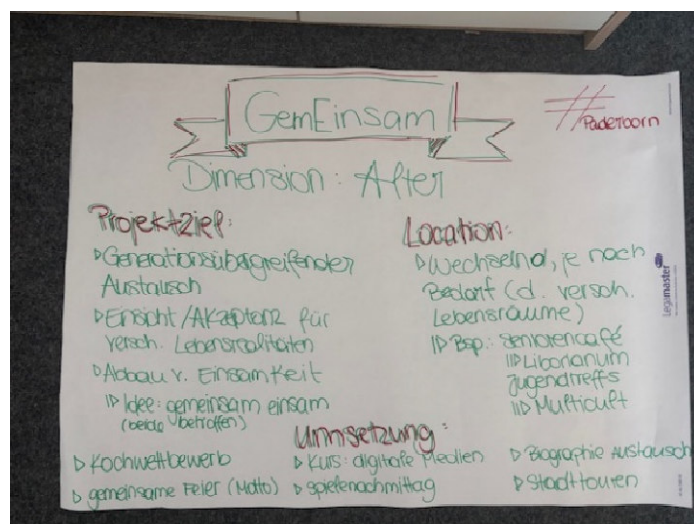 GemEinsam
#Paderborn
Dimension: Alter
Projektziel:
▹Generationsübergreifender
Austausch
▹Einsicht/Akzeptanz für
versch. Lebensrealitäten
▹Abbau v. Einsamkeit
II▹ Idee: gemeinsam einsam
(beide betroffen)
Location:
▹Wechselnd, je nach
Bedarf (d. versch.
Lebensräume)
I▹ Bsp.: Seniorencafé
II▹ Liborianum
Jugendtreffs
II▹ Multicult
Legamaster
Umsetzung:
▹ Kochwettbewerb
▹ gemeinsame Feier (Motto)
▹ Kurs: digitale Medien
▹ Spielenachmittag
▹ Biographie Austausch
▹ Stadttouren